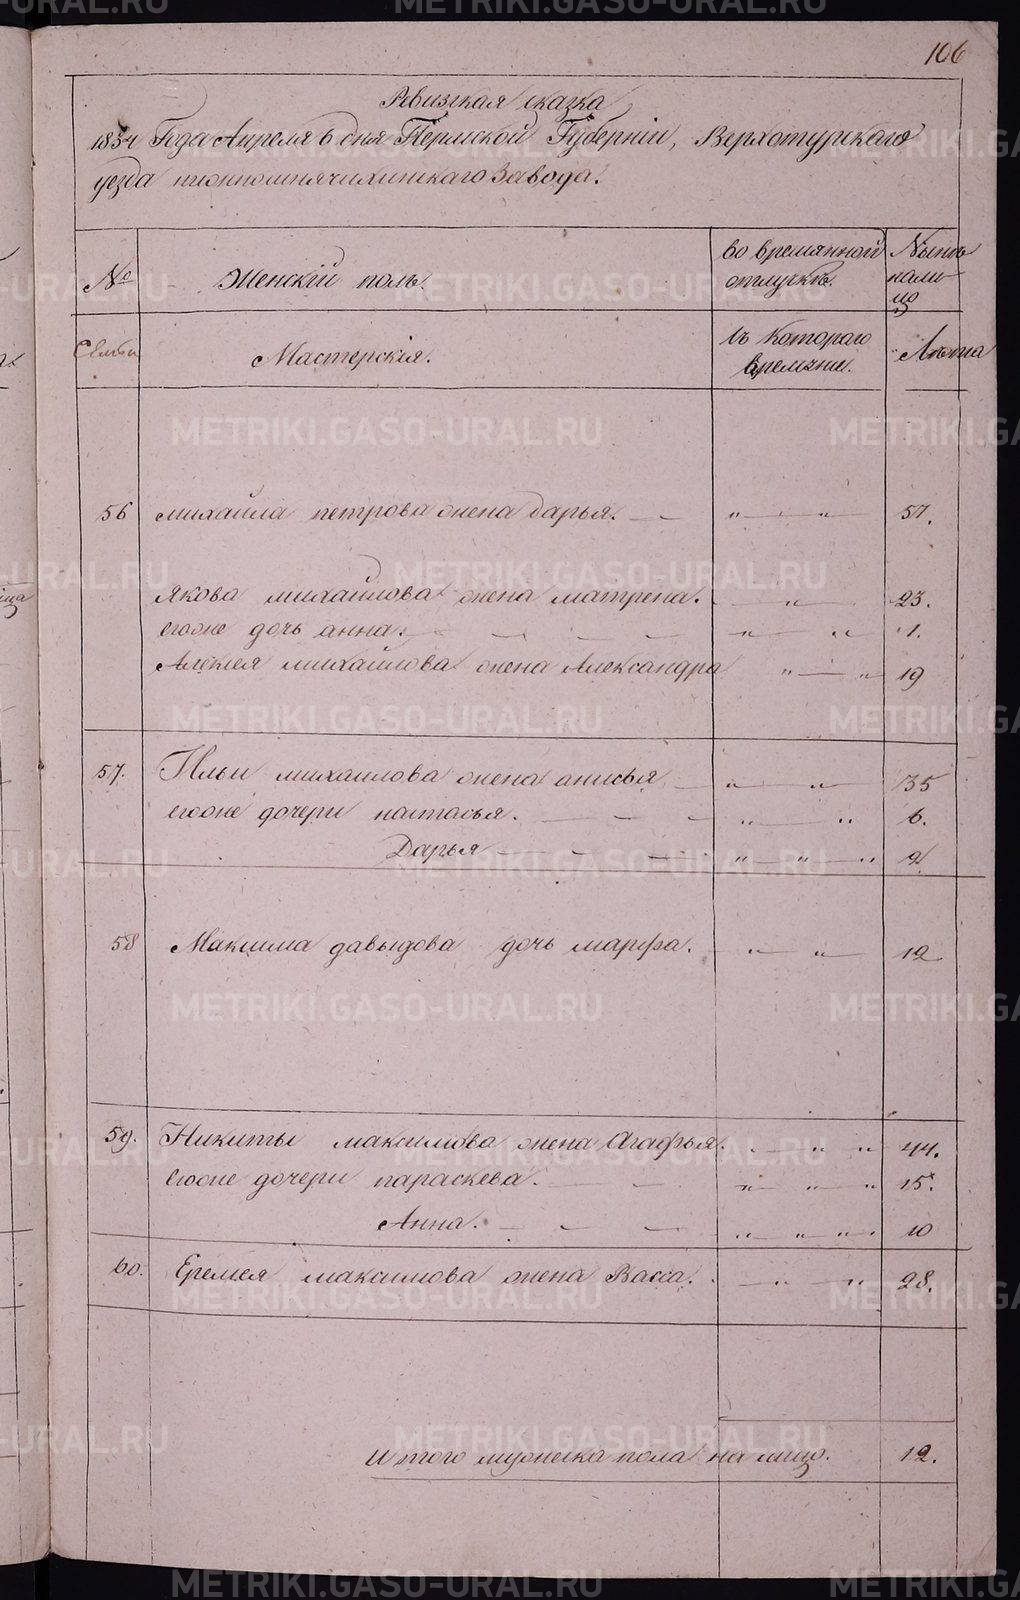 106
Ревизская сказка
1834 Года Апреля 6 дня Пермской Губернiи, Верхотурскаго
уезда нижнотнячихинскаго Завода.
№ Женскiй полъ. во времянной отлучкъ. Нынѣ нали-цо
Семьи Мастерскiя. съ Котораго времѣни. Лѣта
56 михайла петрова жена дарья. " " 57.
якова михайлова жена матрена. " 23.
егоже дочь анна. " " 1.
Алексея михайлова жена Александра " " 19
57. Ильи михаилова жена анисья " " 35
егоже дочери настасья. " " 6.
Дарья " " " 2
58 Максима давыдова дочь марфа. " " 12
59. Никиты максимова жена Агафья. " " " 44.
егоже дочери параскева. " " " 15.
Анна. " " " " 10
60. Еремея максимова жена Васса. " " 28.
Итого муженска пола на лицо. 12.
METRIKI.GASO-URAL.RU